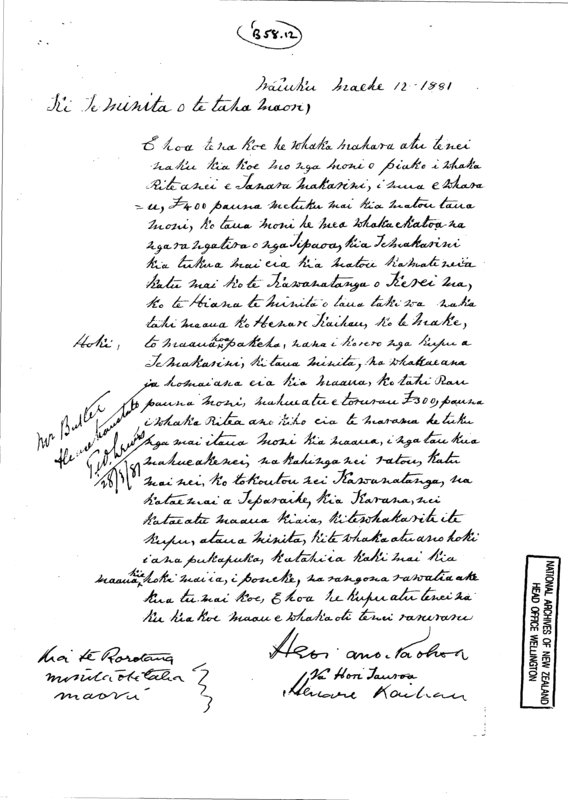 B58.12
Waiuku Maehe 12 - 1881
Ki Te Minita o te taha Maori,
E hoa tena koe he whaka mahara atu tenei
naku kia koe mo nga moni o piako i whaka
Rite anei e Tanara Makarini, i mua e whara
=u, £400 pauna me tuku mai kia matou taua
moni, ko taua moni he mea whakaekatoa na
nga rangatira o nga Tipaoa, kia Temakarini
kia tukua mai eia kia matou
katu mai ko te Kawanatanga o Kerei ma,
ko te Hiana te minita o taua taki wa naka
tahi maaua ko Henare Kaihau, ko le make,
Hoki, to maaua hoa pakeha, nana i korero nga kupu a
Temakarini, ki taua minita, na whakaeana
ia homaiana eia kia maaua, ko tahi Rau
pauna moni, nahuatu e toru rau £300, pauna
i whaka Ritea ano kiho eia te marama he tuku
nga mai i taua moni kia maaua, i nga tau kua
mahue ake nei, na kahinga nei ratou, katu
mai nei, ko to koutou nei Kawanatanga, na
katae mai a Teparaihe, kia Karana, nei
katae atu maaua kiaia, ki te whakarite ite
kupu, a taua minita, ki te whaka atu ano hoki
i ana pukapuka, katahi ia kaki mai kia
maaua, kia hoki mai ia, i poneke, na rangona rawatia ake
kua tu mai koe, E hoa he kupu atu tenei na
ku kia koe maau e whakaoti tenei raruraru
Mr Butler
translate
28/3/81
Heoi ano. Na o hoa
Na Hori Tauroa
Henare Kaihau
Kia te Rorotana
minita o te taha
maori
NATIONAL ARCHIVES OF NEW ZEALAND
HEAD OFFICE WELLINGTON